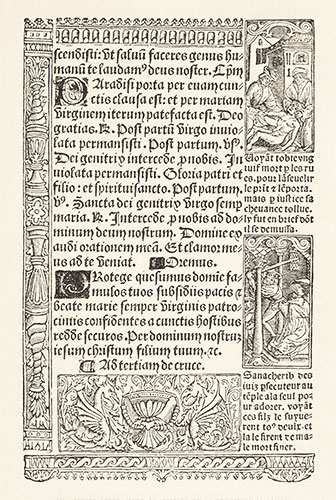 scendisti: Ut saluū faceres genus hu
manū te laudam⁹ deus noster. Chm̄
Paradisi porta per euam cun
ctis clausa est: et per mariam
virginem iterum patefacta est. Deo
gratias. ℟. Post partū virgo inuio
lata permansisti. Post partum. v̄s.
Dei genitrix intercede pro nobis. In
uiolata permansisti. Gloria patri et
filio: et spirituisancto. Post partum.
v̄s. Sancta dei genitrix virgo semp
maria. ℟. Intercede pro nobis ad do
minum deum nostrum. Domine ex
audi orationem meā. Et clamor me
us ad te veniat. Oremus.
Protege quesumus domine fa
mulos tuos subsidiis pacis et
beate marie semper virginis patro
ciniis confidentes a cunctis hostibus
redde securos. Per dominum nostrū
iesum christum filium tuum. ⁊c.
Ad tertiam de cruce.
Uoyāt tobie vng
iuif mort p les ru
es. pour lāseuelir
le prīt et lēporta.
mais p iustice sa
cheuance tollue.
ly fut en brief dōt
il se
Sanacherib des
iuifz psecuteur au
tēple a la seul pour
adorer. voyāt
ces filz le suyue
rent
la le firent
le mort finer.